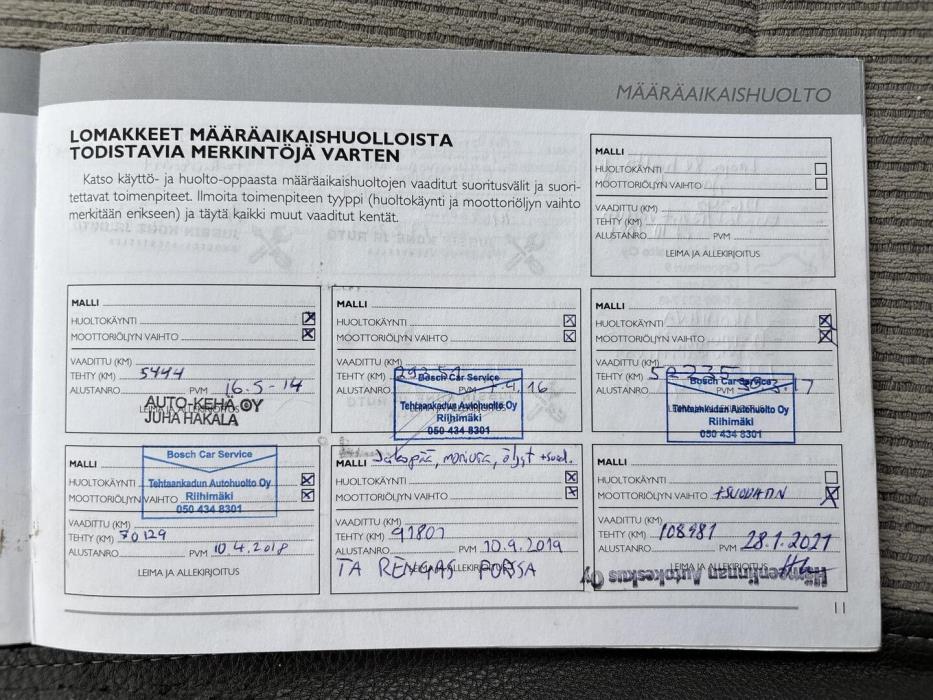 MÄÄRÄAIKAISHUOLTO
LOMAKKEET MÄÄRÄAIKAISHUOLLOISTA
TODISTAVIA MERKINTÖJÄ VARTEN
Katso käyttö- ja huolto-oppaasta määräaikaishuoltojen vaaditut suoritusvälit ja suori-
tettavat toimenpiteet. Ilmoita toimenpiteen tyyppi (huoltokäynti ja moottoriöljyn vaihto
merkitään erikseen) ja täytä kaikki muut vaaditut kentät.
MALLI
HUOLTOKÄYNTI
MOOTTORIÖLJYN VAIHTO
VAADITTU (KM)
TEHTY (KM)
ALUSTANRO PVM
LEIMA JA ALLEKIRJOITUS
MALLI
HUOLTOKÄYNTI
MOOTTORIÖLJYN VAIHTO
VAADITTU (KM)
TEHTY (KM) 5444
ALUSTANRO PVM 16.5-14
LEIMA JA ALLEKIRJOITUS
AUTO-KEHÄ OY
JUHA HAKALA
MALLI
HUOLTOKÄYNTI
MOOTTORIÖLJYN VAIHTO
VAADITTU (KM)
TEHTY (KM)
ALUSTANRO 16
Bosch Car Service
Tehtaankadun Autohuolto Oy
Riihimäki
050 434 8301
MALLI
HUOLTOKÄYNTI
MOOTTORIÖLJYN VAIHTO
VAADITTU (KM)
TEHTY (KM)
ALUSTANRO PVM 17
Bosch Car Service
Tehtaankadun Autohuolto Oy
Riihimäki
050 434 8301
MALLI
Bosch Car Service
HUOLTOKÄYNTI
Tehtaankadun Autohuolto Oy
MOOTTORIÖLJYN VAIHTO
Riihimäki
050 434 8301
VAADITTU (KM)
TEHTY (KM) 70129
ALUSTANRO PVM 10.4.2018
LEIMA JA ALLEKIRJOITUS
MALLI Jakopää, moniura, öljyt + suod.
HUOLTOKÄYNTI
MOOTTORIÖLJYN VAIHTO
VAADITTU (KM)
TEHTY (KM) 91801
ALUSTANRO PVM 10.9.2019
LEIMA JA ALLEKIRJOITUS
TA RENGAS FORSSA
MALLI
HUOLTOKÄYNTI
MOOTTORIÖLJYN VAIHTO + SUODATIN
VAADITTU (KM)
TEHTY (KM) 108981
ALUSTANRO PVM 28.1.2021
LEIMA JA ALLEKIRJOITUS
Hämeenlinnan Autokeskus Oy
11